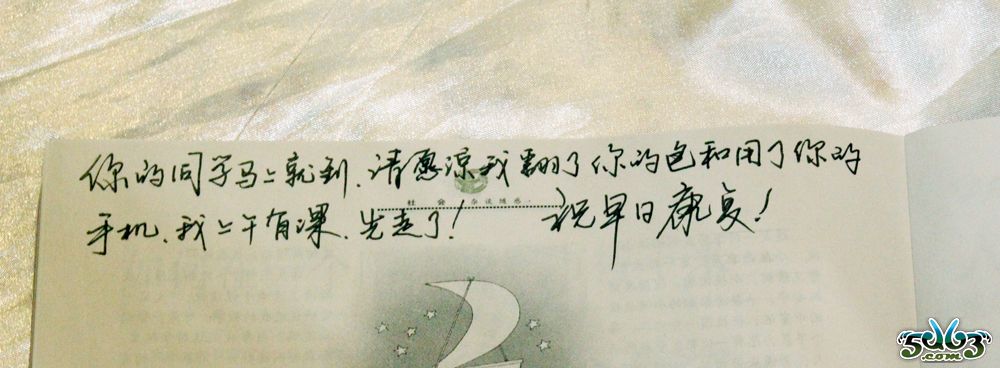 你的同学马上就到.请愿谅我翻了你的包和用了你的
社 会
手机.我上午有课.先走了! 祝早日康复!
5d63
.com